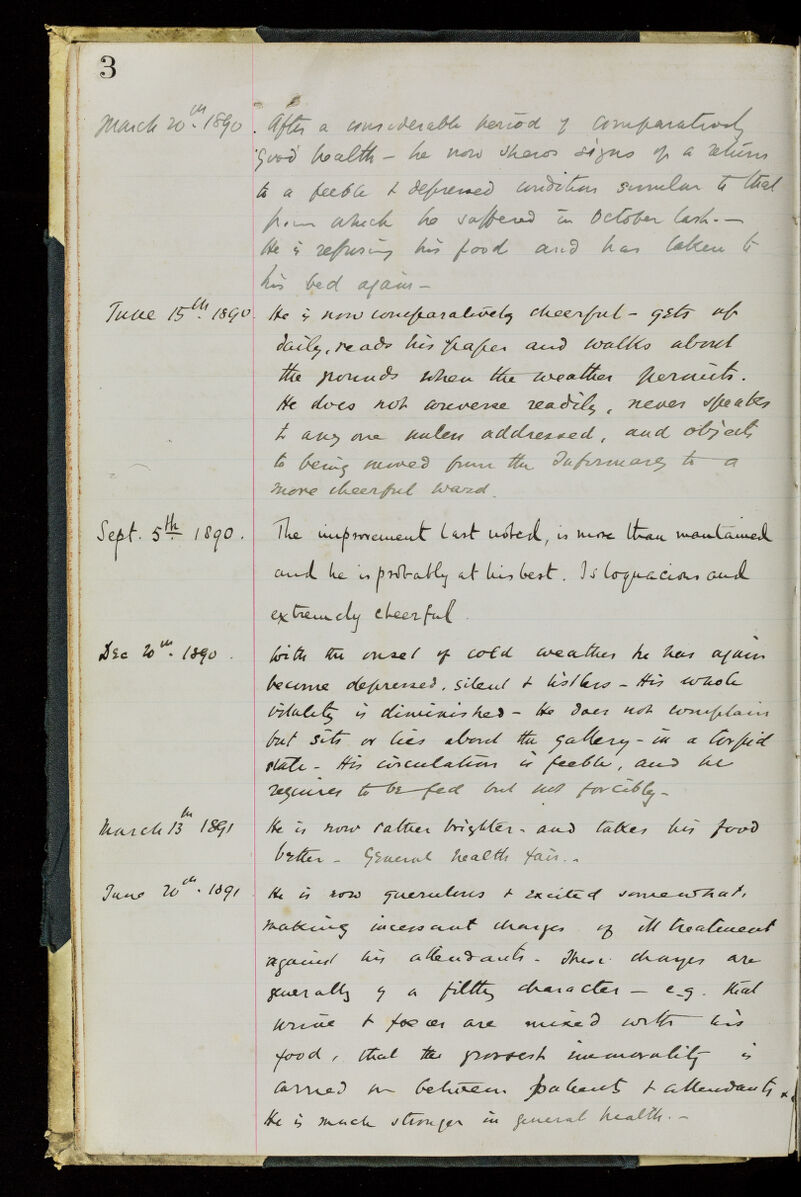 3
March 20th 1890. After a considerable period of comparatively
good health – he now shows signs of a return
to a feeble & depressed condition similar to that
from which he suffered in October last. –
He is refusing his food and has taken to
his bed again –
June 15th 1890. He is now comparatively cheerful – gets up
daily, reads his paper and walks about
the grounds when the weather permits.
He does not converse readily, never speaks
to any one unless addressed, and objects
to being moved from the Infirmary to a
more cheerful ward.
Sept. 5th 1890. The improvement last noted, is more than maintained
and he is probably at his best. Is loquacious and
extremely cheerful.
Dec 20th. 1890. With the onset of cold weather he has again
become depressed, silent & listless – His whole
vitality is diminished – He does not complain
but sits or lies about the gallery – in a torpid
state – His circulation is feeble, and he
requires to be fed but not forcibly –
March 13th 1891 He is now rather brighter – and takes his food
better – General health fair. –
June 20th. 1891 He is now querulous & excited somewhat,
making incessant charges of ill treatment
against his attendants – These charges are
generally of a filthy character – e.g. that
urine & fœces are mixed with his
food, that the grossest immorality is
carried on between patients & attendants &c
He is much stronger in general health. –